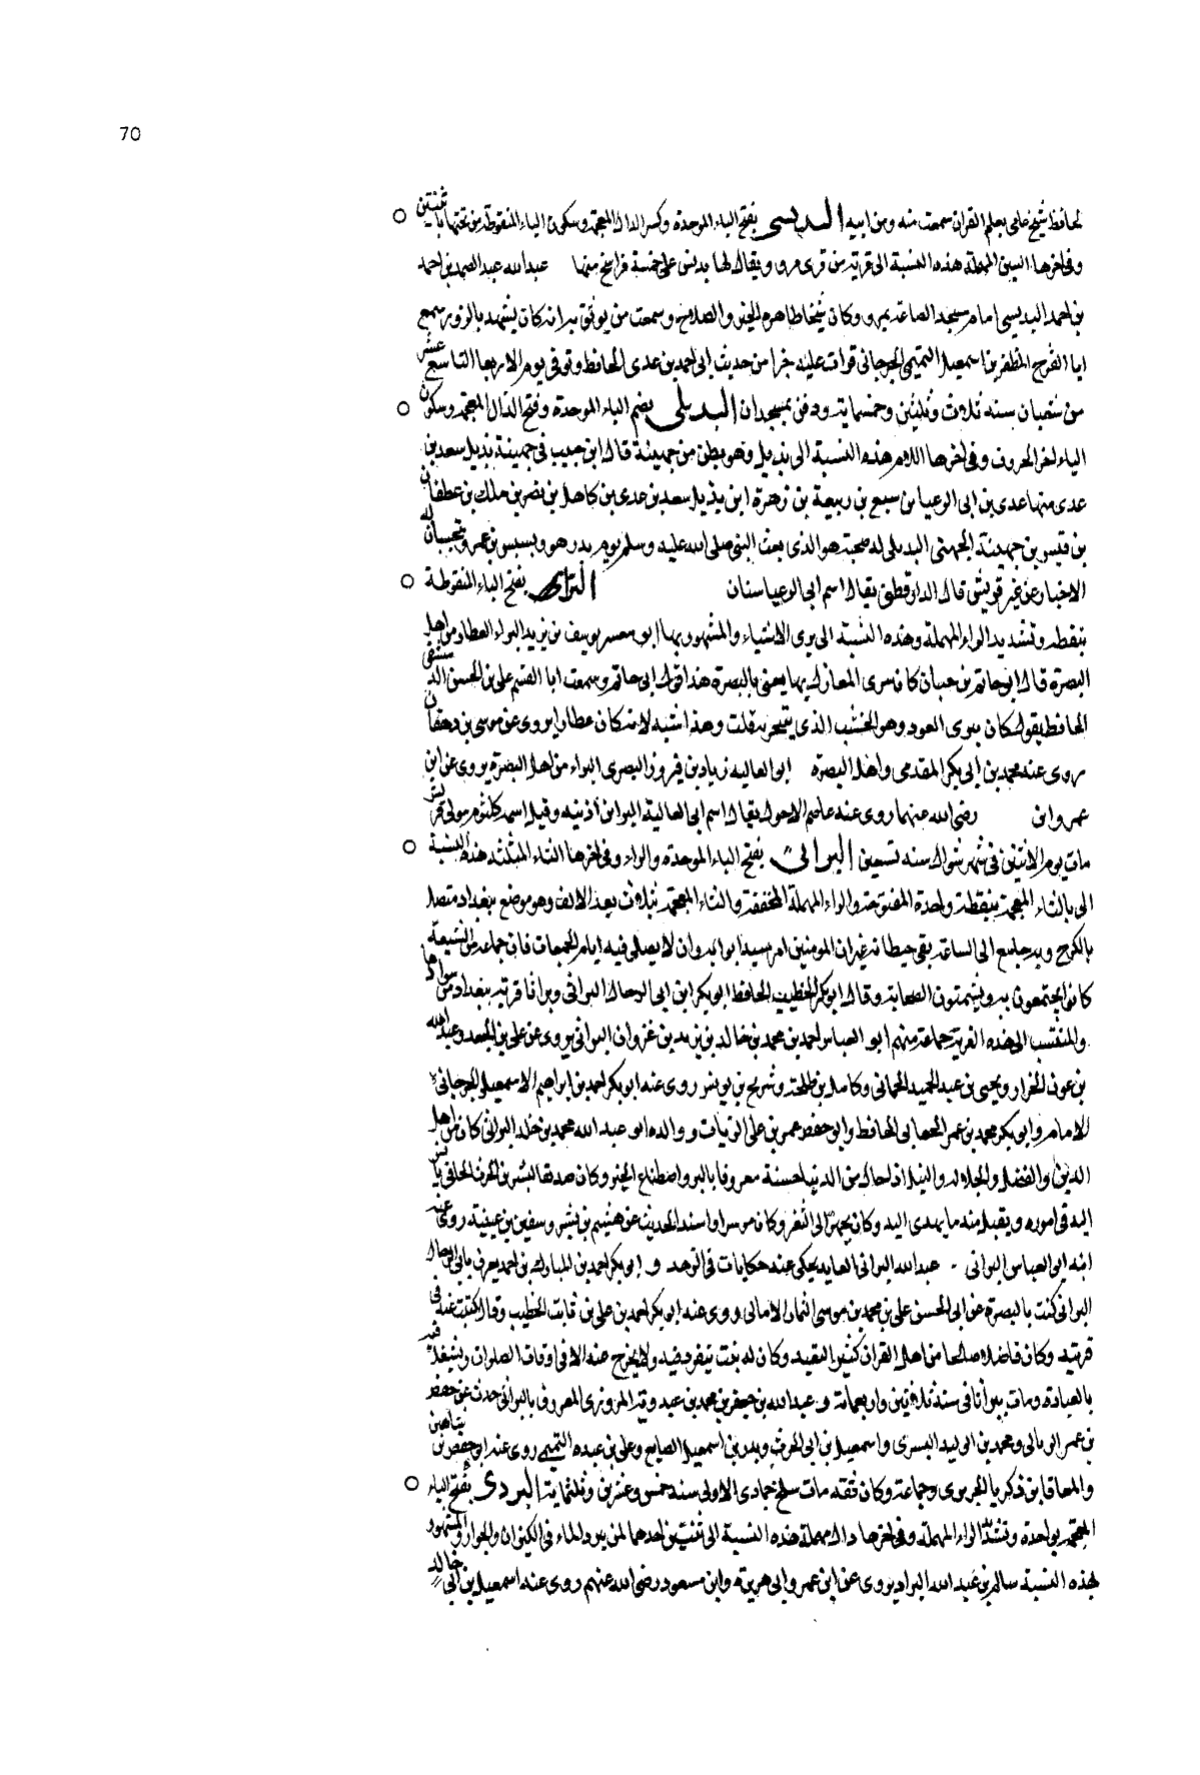 70
الحافظ شيخ صالح يعلم القران سمعت منه ومن ابيه البذيسى بفتح الباء الموحدة وكسر الذال المعجمة وسكون الياء المنقوطة من تحتها باثنتين
وفى اخرها السين المهملة هذه النسبة الى قرية من قرى مرو ويقال لها بذيس على خمسة فراسخ منها عبدالله عبد الصمد بن احمد
بن احمد البذيسى امام مسجد الصاغة بمرو وكان شيخا ظاهره الخير والصلاح وسمعت من يوثق به انه كان يشهد بالزور سمع
ابا الفرج المظفر بن اسمعيل التميمى الجرجانى قرات عليه جزا من حديث ابى احمد بن عدى الحافظ وتوفى يوم الاربعا التاسع عشر
من شعبان سنه ثلاث وثلثين وخمسماية ودفن بمسجدان البذيلى بضم الباء الموحدة وفتح الذال المعجمة وسكون
الياء اخر الحروف وفى اخرها اللام هذه النسبة الى بذيل وهو بطن من جهينة قال ابن حبيب فى جهينة بذيل سعد بن
عدى منها عدى بن ابى الزغبا سبيع بن ربيعة بن زهرة ابن بذيل سعد بن عدى بن كاهل بن نصر بن ملك بن غطفان
بن قيس بن جهينة الجهنى البذيلى له صحبة هو الذى بعث النبى صلى الله عليه وسلم يوم بدر هو وبسبس بن عمرو يتجسسان له
الاخبار عن عير قريش قال الدارقطنى يقال اسم ابى الزغبا سنان البراء بفتح الباء المنقوطة
بنقطة وتشديد الراء المهملة وهذه النسبة الى برى الاشياء والمشهور بها ابو معشر يوسف بن يزيد البراء العطار من اهل
البصرة قال ابو حاتم بن حبان كان يبرى المغازل بها يعنى بالبصرة هذا قول ابى حاتم وسمعت ابا القسم على بن الحسن الدمشقى
الحافظ يقول كان يبرى العود وهو الخشب الذى يتبخر به قلت وهذا اشبه لانه كان عطارا يروى عن موسى بن دهقان
روى عنه محمد بن ابى بكر المقدمى واهل البصرة ابو العاليه زياد بن فيروز البصرى البراء من اهل البصرة يروى عن ابن
عمر وابن رضى الله عنهما روى عنه عاصم الاحول يقال اسم ابى العالية البراء ابن اذينه وقيل اسمه كلثوم مولى قريش
مات يوم الاثنين فى شهر شوال سنه تسعين البراثى بفتح الباء الموحدة والراء وفى اخرها الثاء المثلثه هذه النسبة
الى براثا بالباء المعجمة بنقطة واحدة المفتوحة والراء المهملة المخففة والثاء المعجمة بثلاث بعد الالف وهو موضع ببغداد متصل
بالكرخ وبه جامع الى الساعة بقى حيطانه غير ان المومنين لا يصلى فيه ايام الجمعات فان جماعة من الشيعة
كانوا يجتمعون به ويشتمون الصحابة وقال ابو بكر الخطيب الحافظ ابو بكر ابن ابى الرجال البراثى وبراثا قرية ببغداد من سوادها
والمنتسب الى هذه القرية جماعة منهم ابو العباس احمد بن محمد بن خالد بن يزيد بن غزوان البراثى يروى عن على بن الجعد وعبدالله
بن عون الخراز ويحيى بن عبد الحميد الحمانى وكامل بن طلحة وشريح بن يونس روى عنه ابو بكر احمد بن ابراهيم الاسمعيلى الجرجانى
الامام وابو بكر محمد بن عمر الجعابى الحافظ وابو حفص عمر بن على الزيات ووالده ابو عبد الله محمد بن خلد البراثى كان من اهل
الدين والفضل والجلاله والنبل ذا حال من الدنيا حسنة معروفا بالبر واصطناع الخير وكان صديقا لبشر بن الحرث الحافى يانس
اليه فى اموره ويقبل منه ما يهدى اليه وكان يجهز الى الثغر وكان موسرا واسند الحديث عن هشيم بن بشير وسفين بن عيينة روى عنه
ابنه ابو العباس البراثى عبدالله البراثى العابد يحكى عنه حكايات فى الزهد و ابو بكر احمد بن المبارك بن احمد يعرف بابى الرجال
البراثى كتب بالبصرة عن ابى الحسن على بن محمد بن موسى التمار الامالى روى عنه ابو بكر احمد بن على بن ثابت الخطيب وقال كتبت عنه فى
قريته وكان فاضلا صالحا من اهل القران كثير التعبد وكان له بيت ينفرد فيه ولا يخرج منه الا فى اوقات الصلوات ويتشغل فيه
بالعبادة ومات ببراثا فى سنة ثلاثين واربعماية و عبدالله بن جعفر بن محمد بن عبدويه المروزى المعروف بالبراثى حدث عن حفص
بن عمر الربالى ومحمد بن الوليد البسرى واسمعيل بن ابى الحرث وبدر بن اسمعيل الصايغ وعلى بن عبده التميمى روى عنه ابو حفص بن شاهين
والمعافا بن زكريا الجريرى وجماعة وكان ثقة مات سلخ جمادى الاولى سنه خمس وعشرين وثلثماية البردى بفتح الباء
المعجمة بواحدة وتشديد الراء المهملة وفى اخرها دال مهملة هذه النسبة الى شيئين احدهما لمن يبرد الماء فى الكيزان والجرار والمشهور
بهذه النسبة سالم بن عبد الله البراد يروى عن ابن عمر وابى هريرة وابن مسعود رضى الله عنهم روى عنه اسمعيل بن ابى خالد